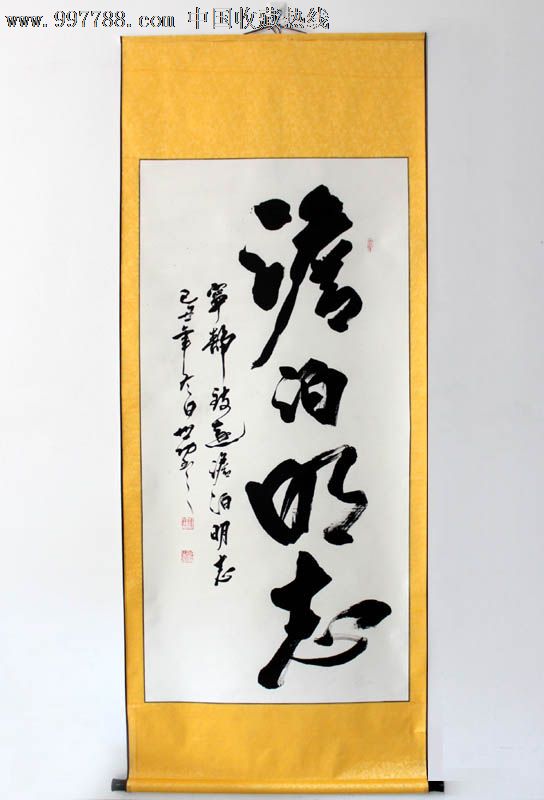 www.997788.com 中国收藏热线
澹泊明志
宁静致远澹泊明志
己丑年